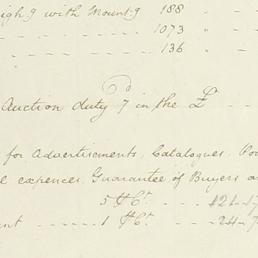 with Mount.g 188
1073
136
Auction duty 7 in the £
for Advertisements, Catalogues,
expences, Guarantee of Buyers
5 ⅌ Ct.
1 ⅌ Ct.